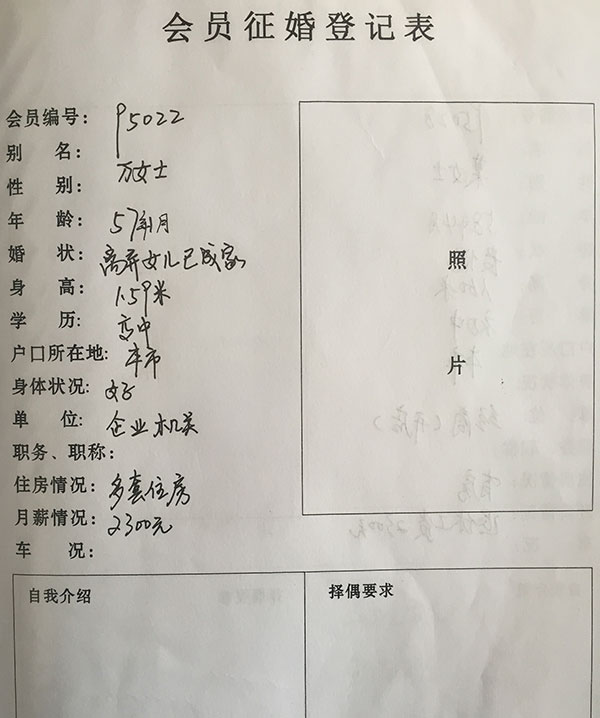 会员征婚登记表
会员编号: P5022
别 名:
万女士
性 别:
年 龄: 57年1月
婚 状: 离异女儿已成家
身 高: 1.59米
学 历: 高中
户口所在地: 本市
身体状况: 好
单 位: 企业机关
职务、职称:
住房情况: 多套住房
月薪情况: 2300元
车 况:
照
片
自我介绍
择偶要求